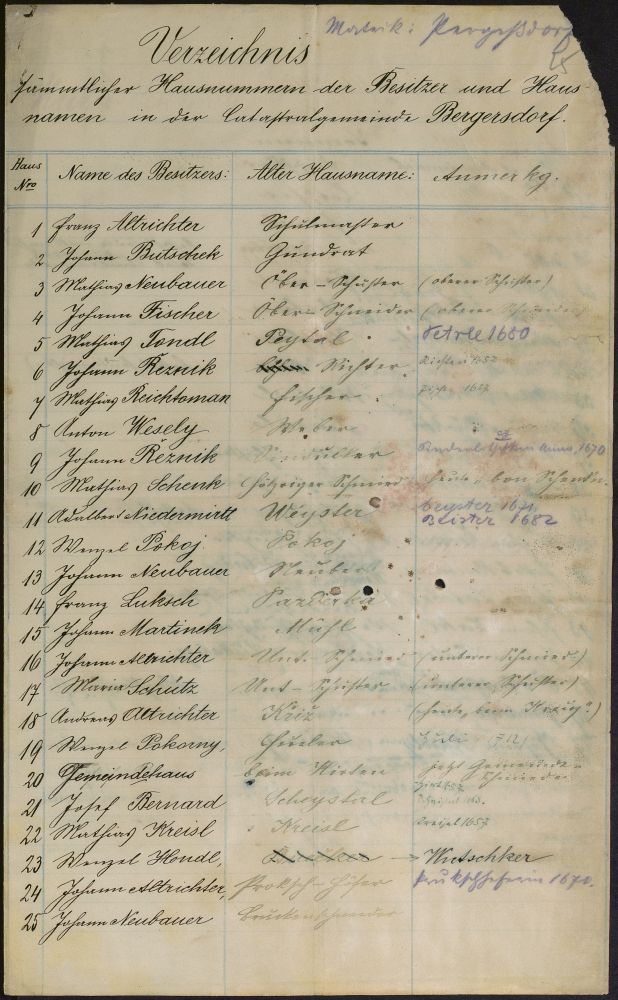 Matrik: Pergeßdorf
Verzeichnis
sämmtlicher Hausnummern der Besitzer und Haus-
namen in der Catastralgemeinde Bergersdorf.
Haus Nro Name des Besitzers: Alter Hausname: Anmerkg.
1 Franz Altrichter Schulmaster
2 Johann Butschek Gundrat
3 Mathias Neubauer Ober-Schuster (oberer Schuster)
4 Johann Fischer Ober-Schneider (oberer Schneider)
5 Mathias Tondl Peytal Petrle 1680
6 Johann Řeznik Richter Richter 1657
7 Mathias Reichtoman Fischer
8 Anton Wesely Weber
9 Johann Řeznik Anno 1670
10 Mathias Schenk Schmied heute, bon
11 Adalbert Niedermirtl Weyster 1671
1682
12 Wenzel Pokoj Pokoj
13 Johann Neubauer
14 Franz Luksch Pazderka
15 Johann Martinek Mühl
16 Johann Altrichter Unt. Schmied (unterer Schmied)
17 Maria Schütz Unt-Schuster (unterer Schuster)
18 Andreas Altrichter Křiž (heute, beim
19 Wenzel Pokorny,
20 Gemeindehaus beim Hirten jetzt Gemeinde-
Schmiede
21 Josef Bernard Scheystal
22 Mathias Kreisl Kreisl Kreisel 1657
23 Wenzel Hondl, Wutschker
24 Johann Altrichter, Proksch- 1670.
25 Johann Neubauer